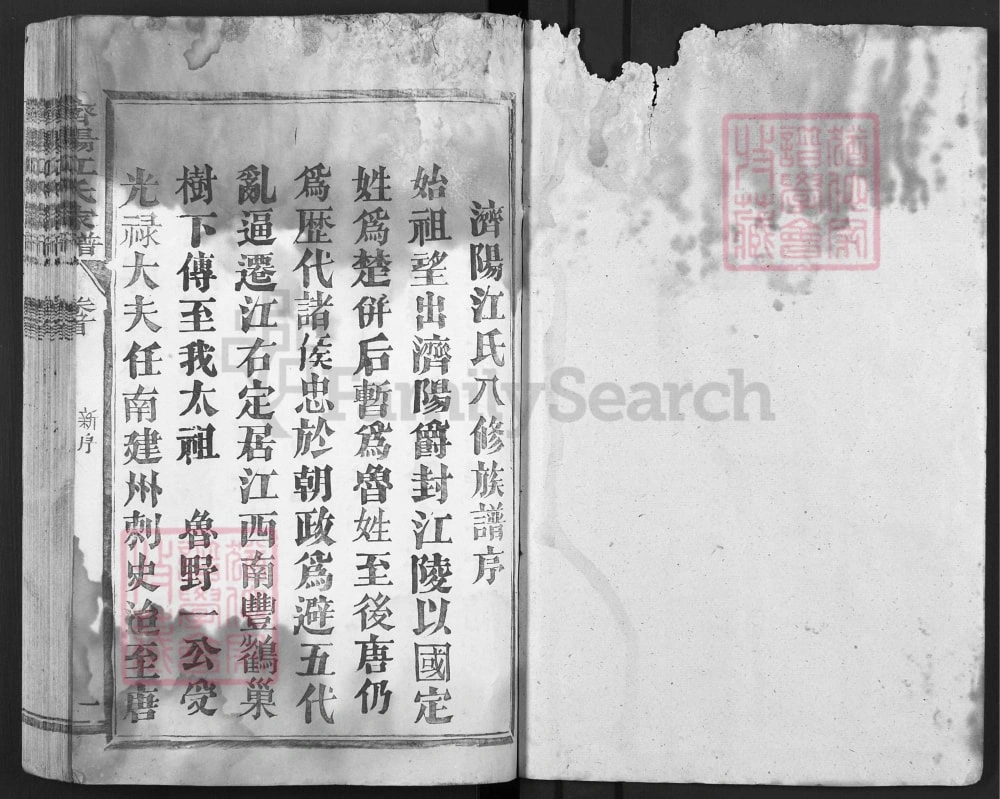 濟陽江氏八修族譜序
始祖望出濟陽爵封江陵以國定
姓爲楚併后暫爲魯姓至後唐仍
爲歷代諸侯忠於朝政爲避五代
亂逼遷江右定居江西南豐鶴巢
樹下傳至我太祖 魯野一公受
光祿大夫任南建州刺史治至唐
濟陽江氏家譜
新序
一
FamilySearch